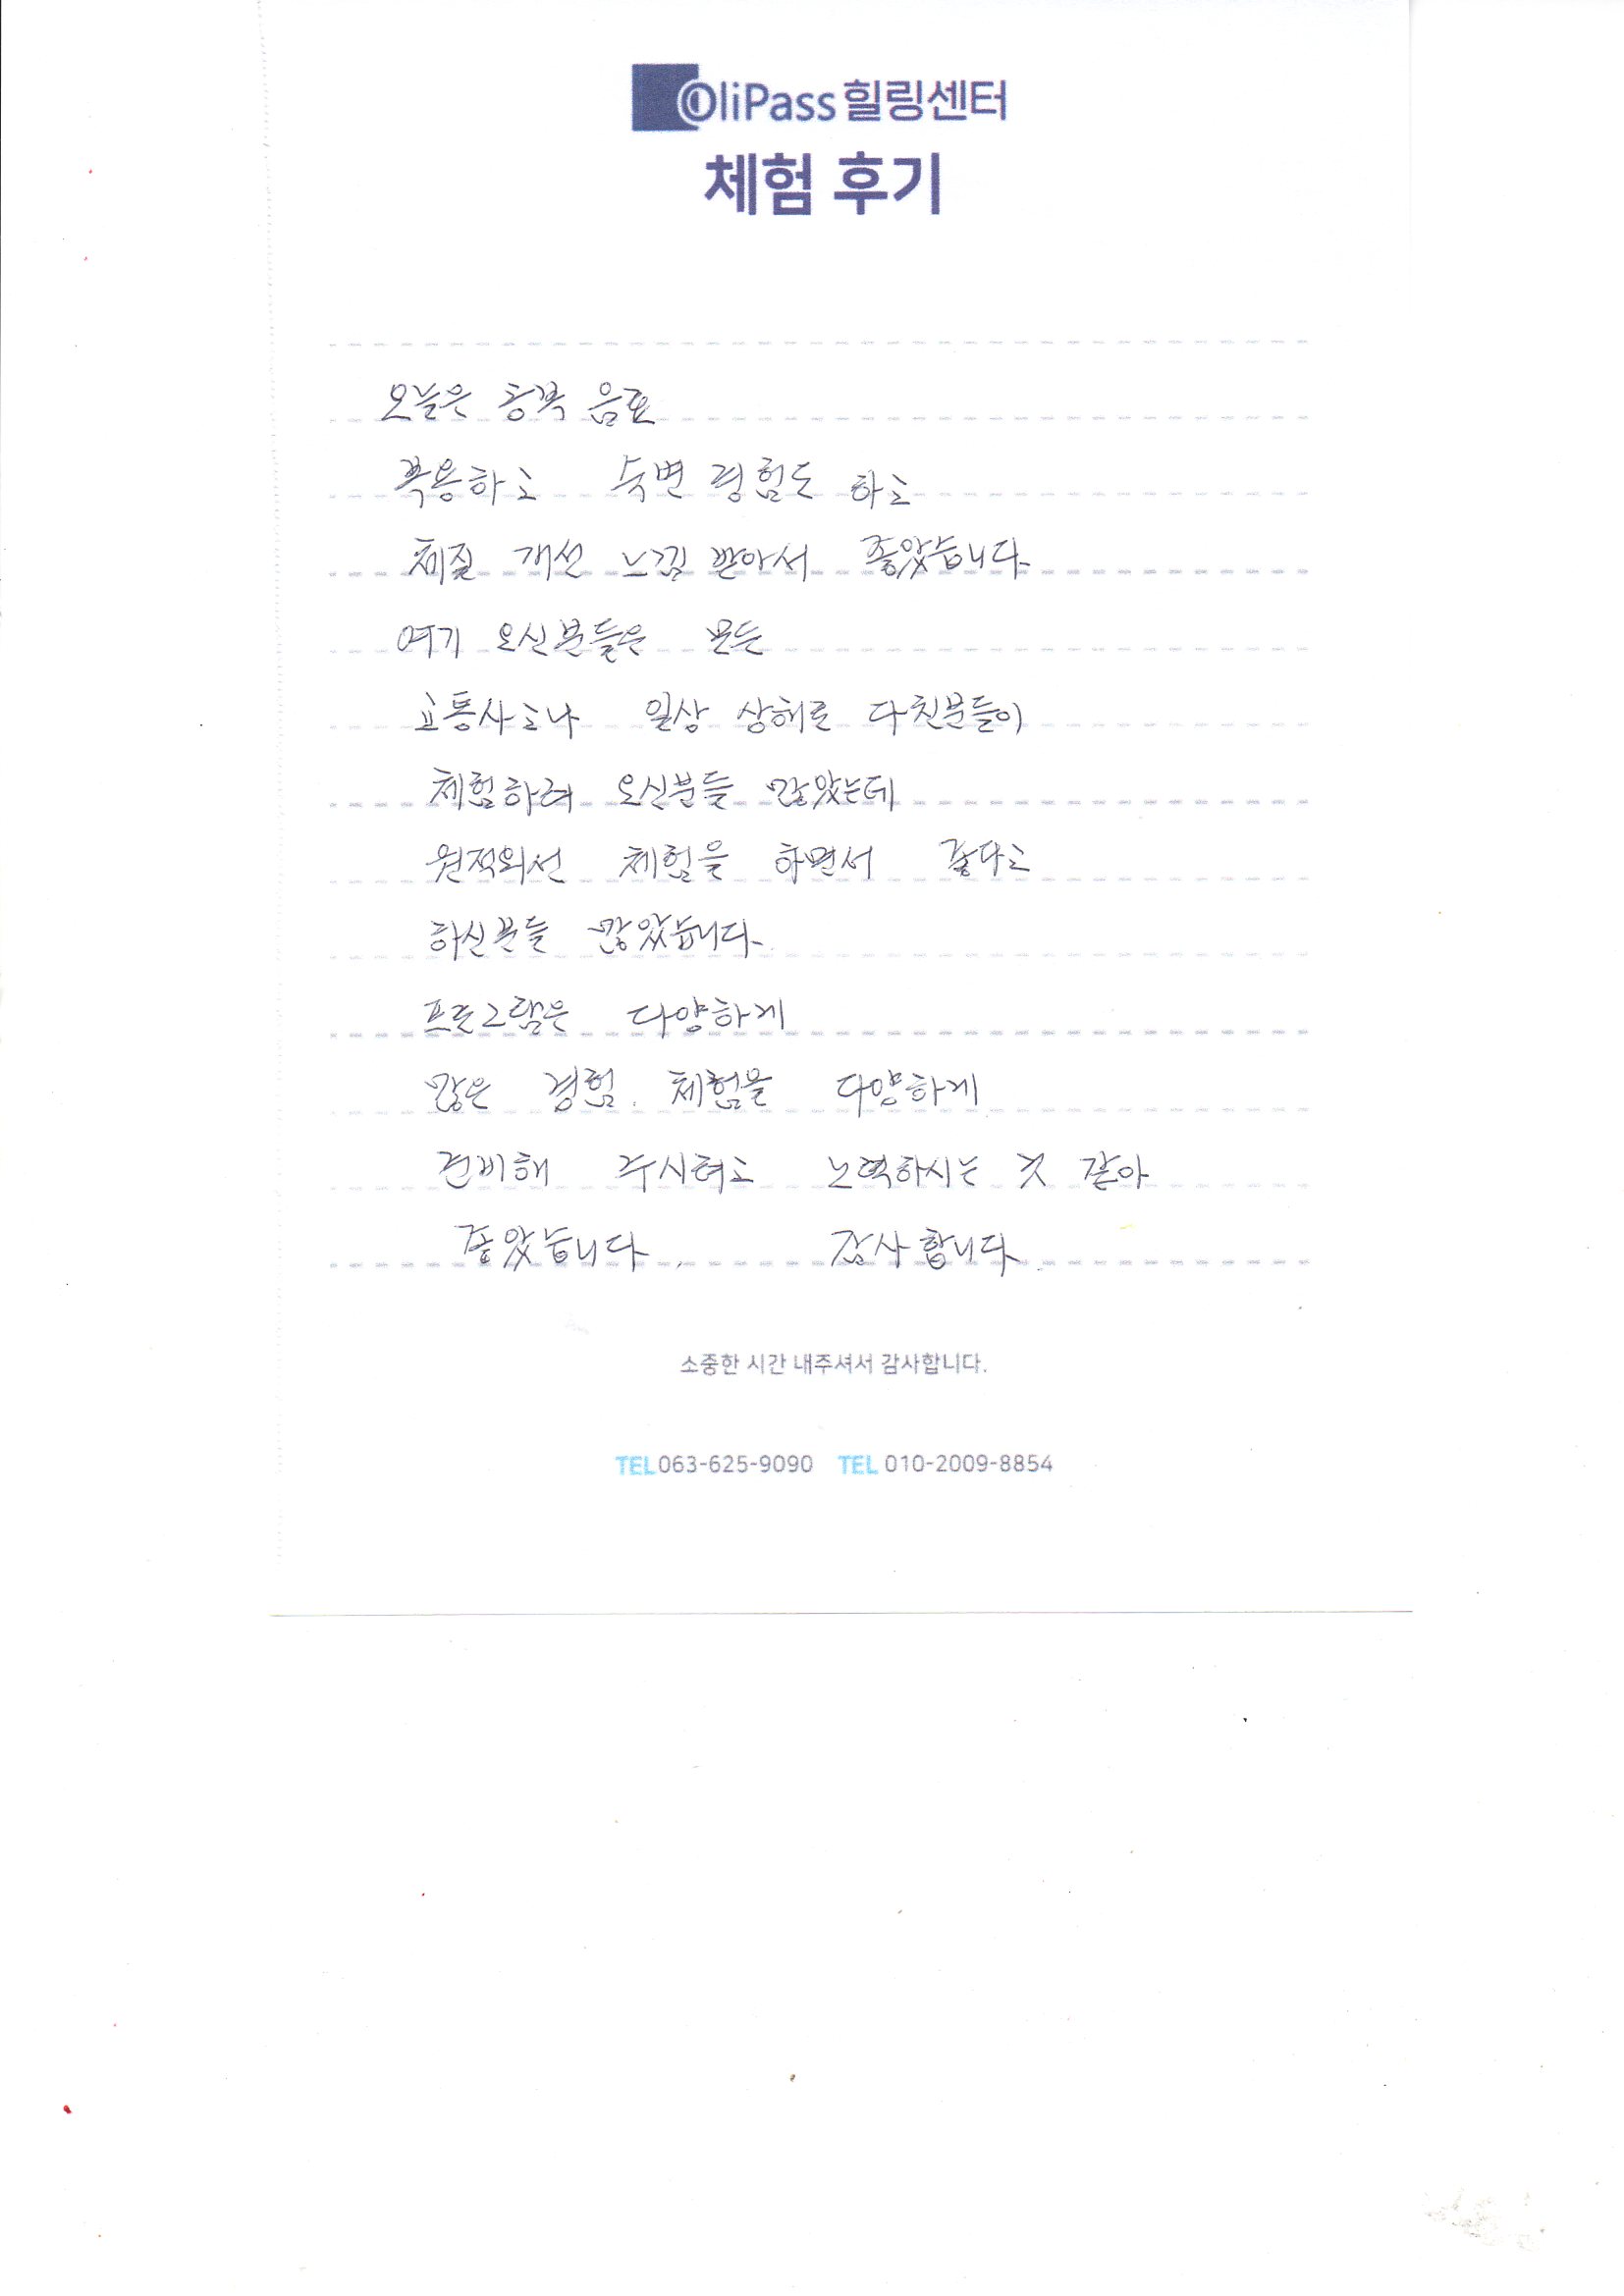 OliPass 힐링센터
체험 후기
오늘은 음료
복용하고 숙변 경험도 하고
체질 개선 느낌 받아서 좋았습니다.
여기 오신분들은 모든
교통사고나 일상 상해로 다친분들이
체험하러 오신분들 많았는데
원적외선 체험을 하면서 좋다고
하신분들 많았습니다.
프로그램은 다양하게
많은 경험. 체험을 다양하게
준비해 주시려고 노력하시는 것 같아
좋았습니다. 감사합니다.
소중한 시간 내주셔서 감사합니다.
TEL 063-625-9090 TEL 010-2009-8854